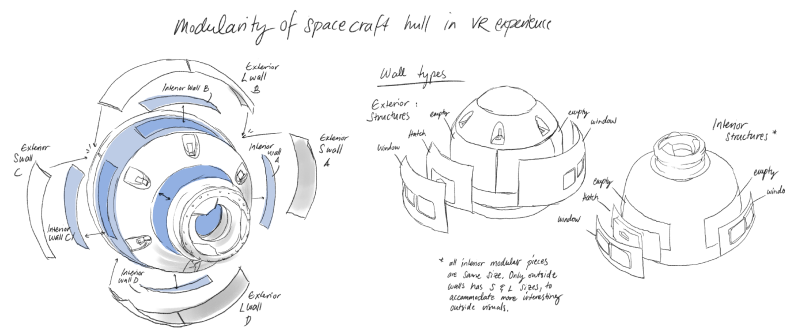 Modularity of spacecraft hull in VR experience
Exterior
L wall
B
Interior Wall B
Exterior
S wall
C
Interior
Wall
A
Exterior
S wall
A
Interior
Wall C
Interior
Wall D
Exterior
L Wall
D
Wall types
Exterior :
Structures
empty
Hatch
Window
empty
window
Interior
Structures *
empty
Hatch
window
empty
windo
* all interior modular pieces
are same size. Only outside
walls has S & L sizes, to
accommodate more interesting
outside visuals.